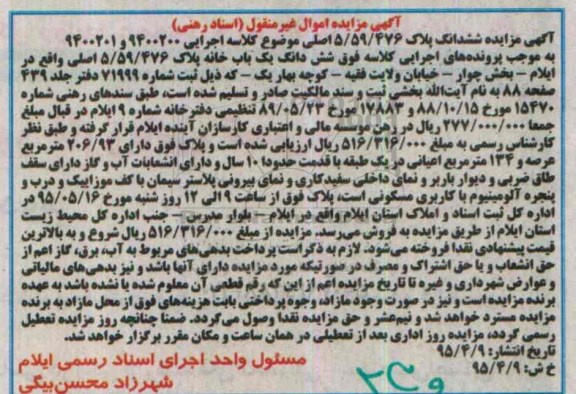 آگهی مزایده اموال غیرمنقول (اسناد رهنی)
آگهی مزایده ششدانگ پلاک ۵/۵۹/۴۷۶ اصلی موضوع کلاسه اجرایی ۹۴۰۰۲۰۰ و ۹۴۰۰۲۰۱
به موجب پرونده‌های اجرایی کلاسه فوق شش دانگ یک باب خانه پلاک ۵/۵۹/۴۷۶ اصلی واقع در
ایلام - بخش چوار - خیابان ولایت فقیه - کوچه بهار یک - که ذیل ثبت شماره ۷۱۹۹۹ دفتر جلد ۴۳۹
صفحه ۸۸ به نام آیت‌الله بخشی ثبت و سند مالکیت صادر و تسلیم شده است، طبق سندهای رهنی شماره
۱۵۴۷۰ مورخ ۸۸/۱۰/۱۵ و ۱۷۸۸۳ مورخ ۸۹/۰۵/۲۳ تنظیمی دفترخانه شماره ۹ ایلام در قبال مبلغ
جمعا ۲۷۷/۰۰۰/۰۰۰ ریال در رهن موسسه مالی و اعتباری کارسازان آینده ایلام قرار گرفته و طبق نظر
کارشناس رسمی به مبلغ ۵۱۶/۳۱۶/۰۰۰ ریال ارزیابی شده است و پلاک فوق دارای ۲۰۶/۹۳ مترمربع
عرصه و ۱۳۴ مترمربع اعیانی در یک طبقه با قدمت حدودا ۱۰ سال و دارای انشعابات آب و گاز دارای سقف
طاق ضربی و دیوار باربر و نمای داخلی سفیدکاری و نمای بیرونی پلاستر سیمان با کف موزاییک و درب و
پنجره آلومینیوم با کاربری مسکونی است، پلاک فوق از ساعت ۹ الی ۱۲ روز شنبه مورخ ۹۵/۰۵/۱۶ در
اداره کل ثبت اسناد و املاک استان ایلام واقع در ایلام - بلوار مدرس - جنب اداره کل محیط زیست
استان ایلام از طریق مزایده به فروش می‌رسد. مزایده از مبلغ ۵۱۶/۳۱۶/۰۰۰ ریال شروع و به بالاترین
قیمت پیشنهادی نقدا فروخته می‌شود. لازم به ذکر است پرداخت بدهی‌های مربوط به آب، برق، گاز اعم از
حق انشعاب و یا حق اشتراک و مصرف در صورتیکه مورد مزایده دارای آنها باشد و نیز بدهی‌های مالیاتی
و عوارض شهرداری و غیره تا تاریخ مزایده اعم از این که رقم قطعی آن معلوم شده یا نشده باشد به عهده
برنده مزایده است و نیز در صورت وجود مازاد، وجوه پرداختی بابت هزینه‌های فوق از محل مازاد به برنده
مزایده مسترد خواهد شد و نیم‌عشر و حق مزایده نقدا وصول می‌گردد. ضمنا چنانچه روز مزایده تعطیل
رسمی گردد، مزایده روز اداری بعد از تعطیلی در همان ساعت و مکان مقرر برگزار خواهد شد.
تاریخ انتشار: ۹۵/۴/۹
خ ش: ۹۵/۴/۹
مسئول واحد اجرای اسناد رسمی ایلام
شهرزاد محسن‌بیگی